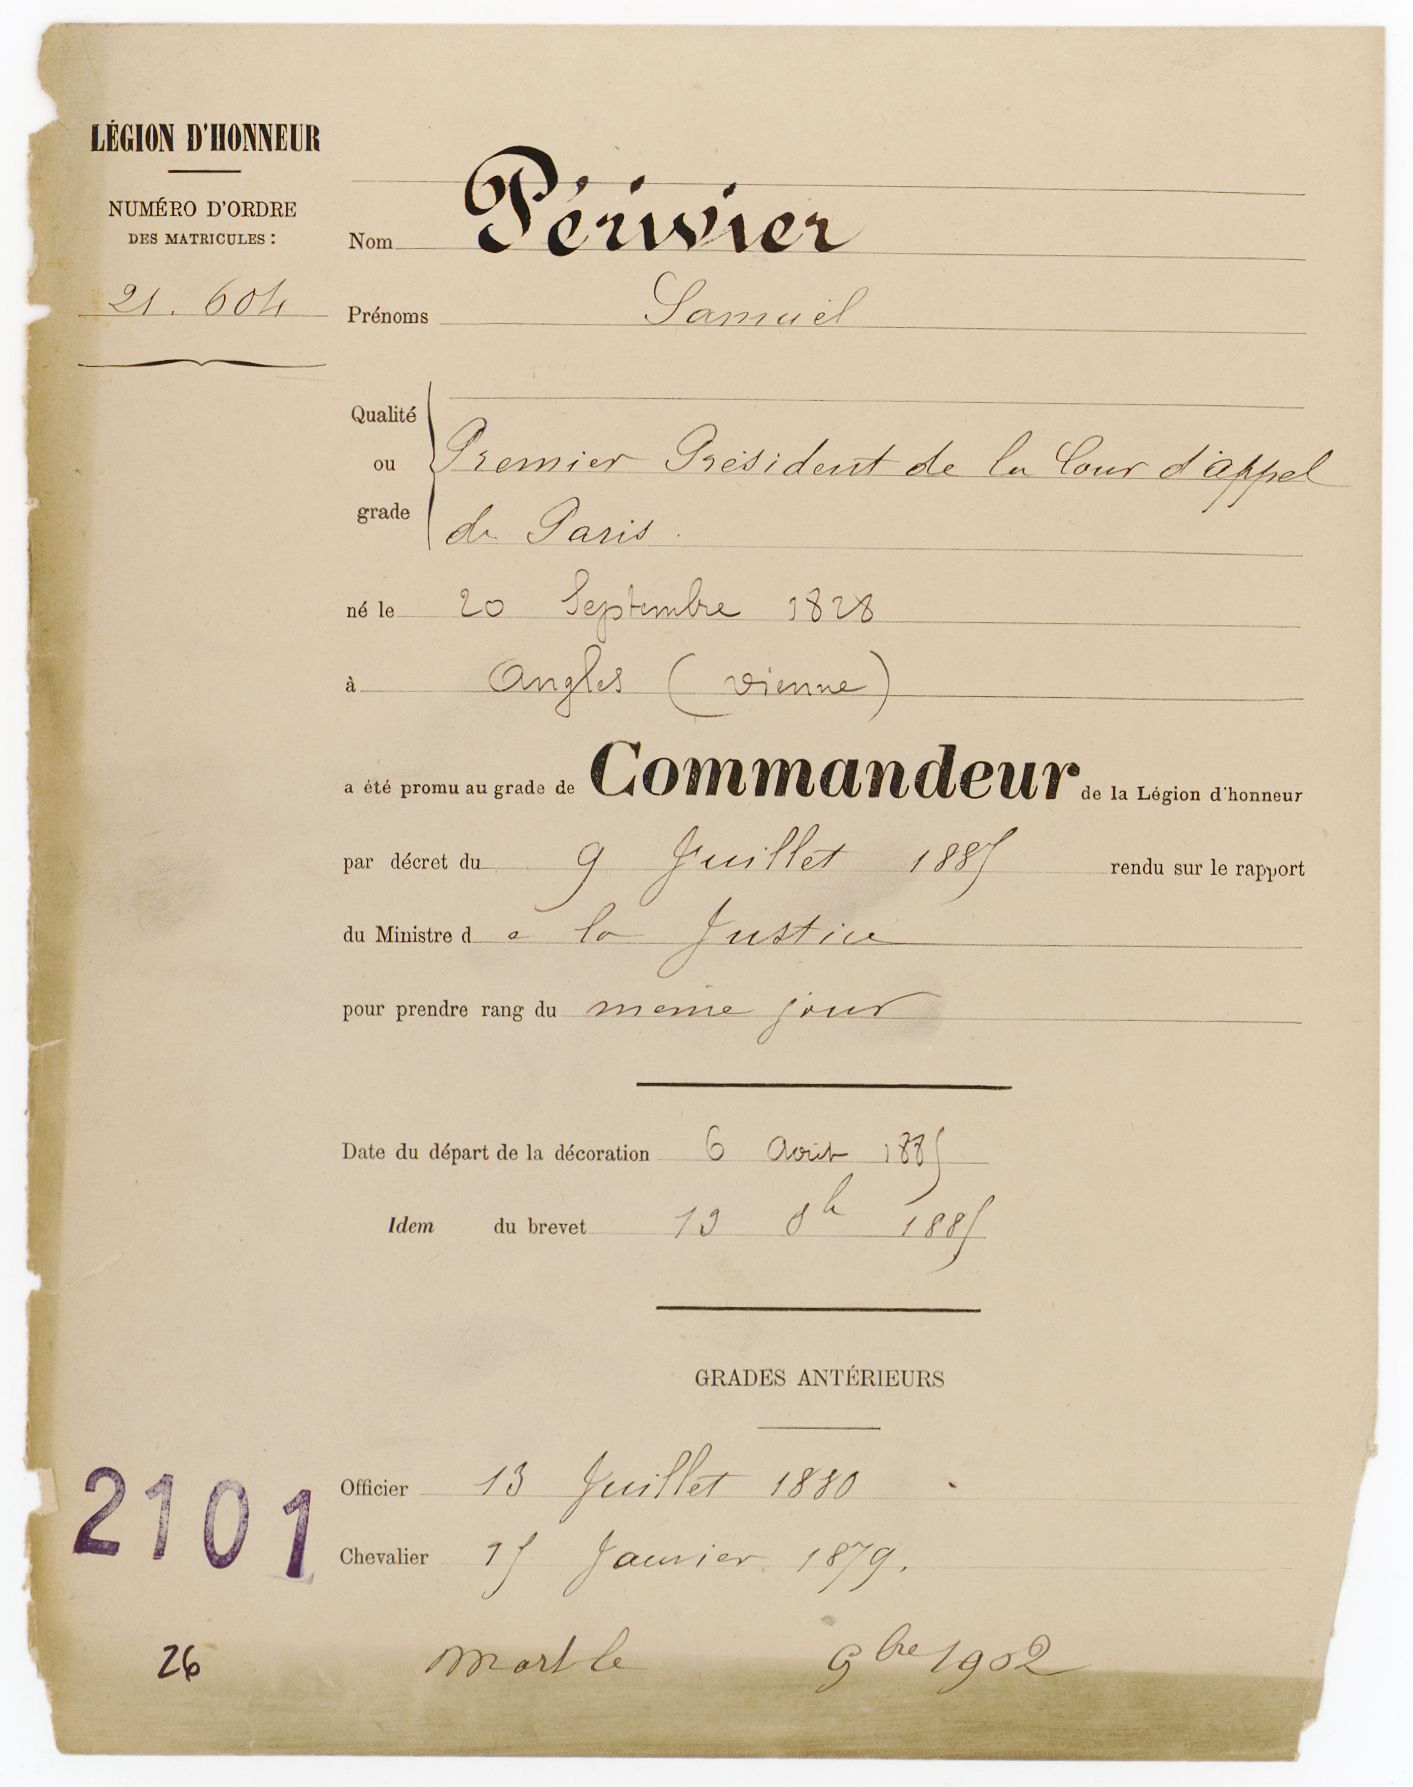 LÉGION D'HONNEUR
NUMÉRO D'ORDRE
DES MATRICULES :
21.604
Nom Périvier
Prénoms Samuel
Qualité ou grade
Premier Président de la Cour d'appel
de Paris.
né le 20 Septembre 1828
à Angles (Vienne)
a été promu au grade de Commandeur de la Légion d'honneur
par décret du 9 Juillet 1885 rendu sur le rapport
du Ministre d e la Justice
pour prendre rang du même jour
Date du départ de la décoration 6 Août 1885
Idem du brevet 19 8b 1885
GRADES ANTÉRIEURS
Officier 13 Juillet 1880
Chevalier 15 Janvier 1879.
2101
26
Mort le 9bre 1902